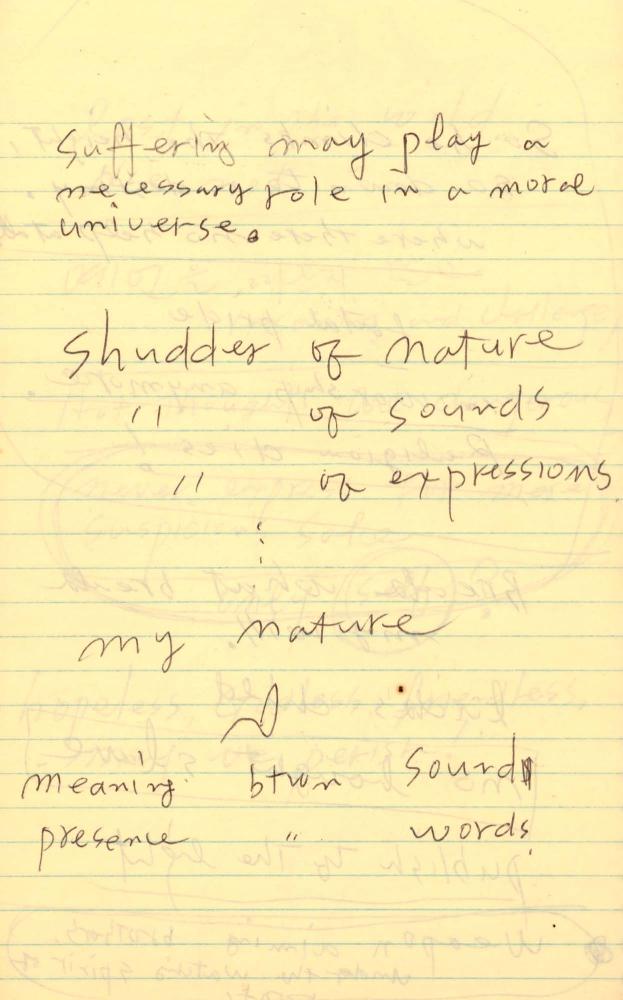 Suffering may play a
necessary role in a moral
universe.
Shudder of nature
" of sounds
" of expressions
⋮
my nature
meaning btwn sound
presence " words